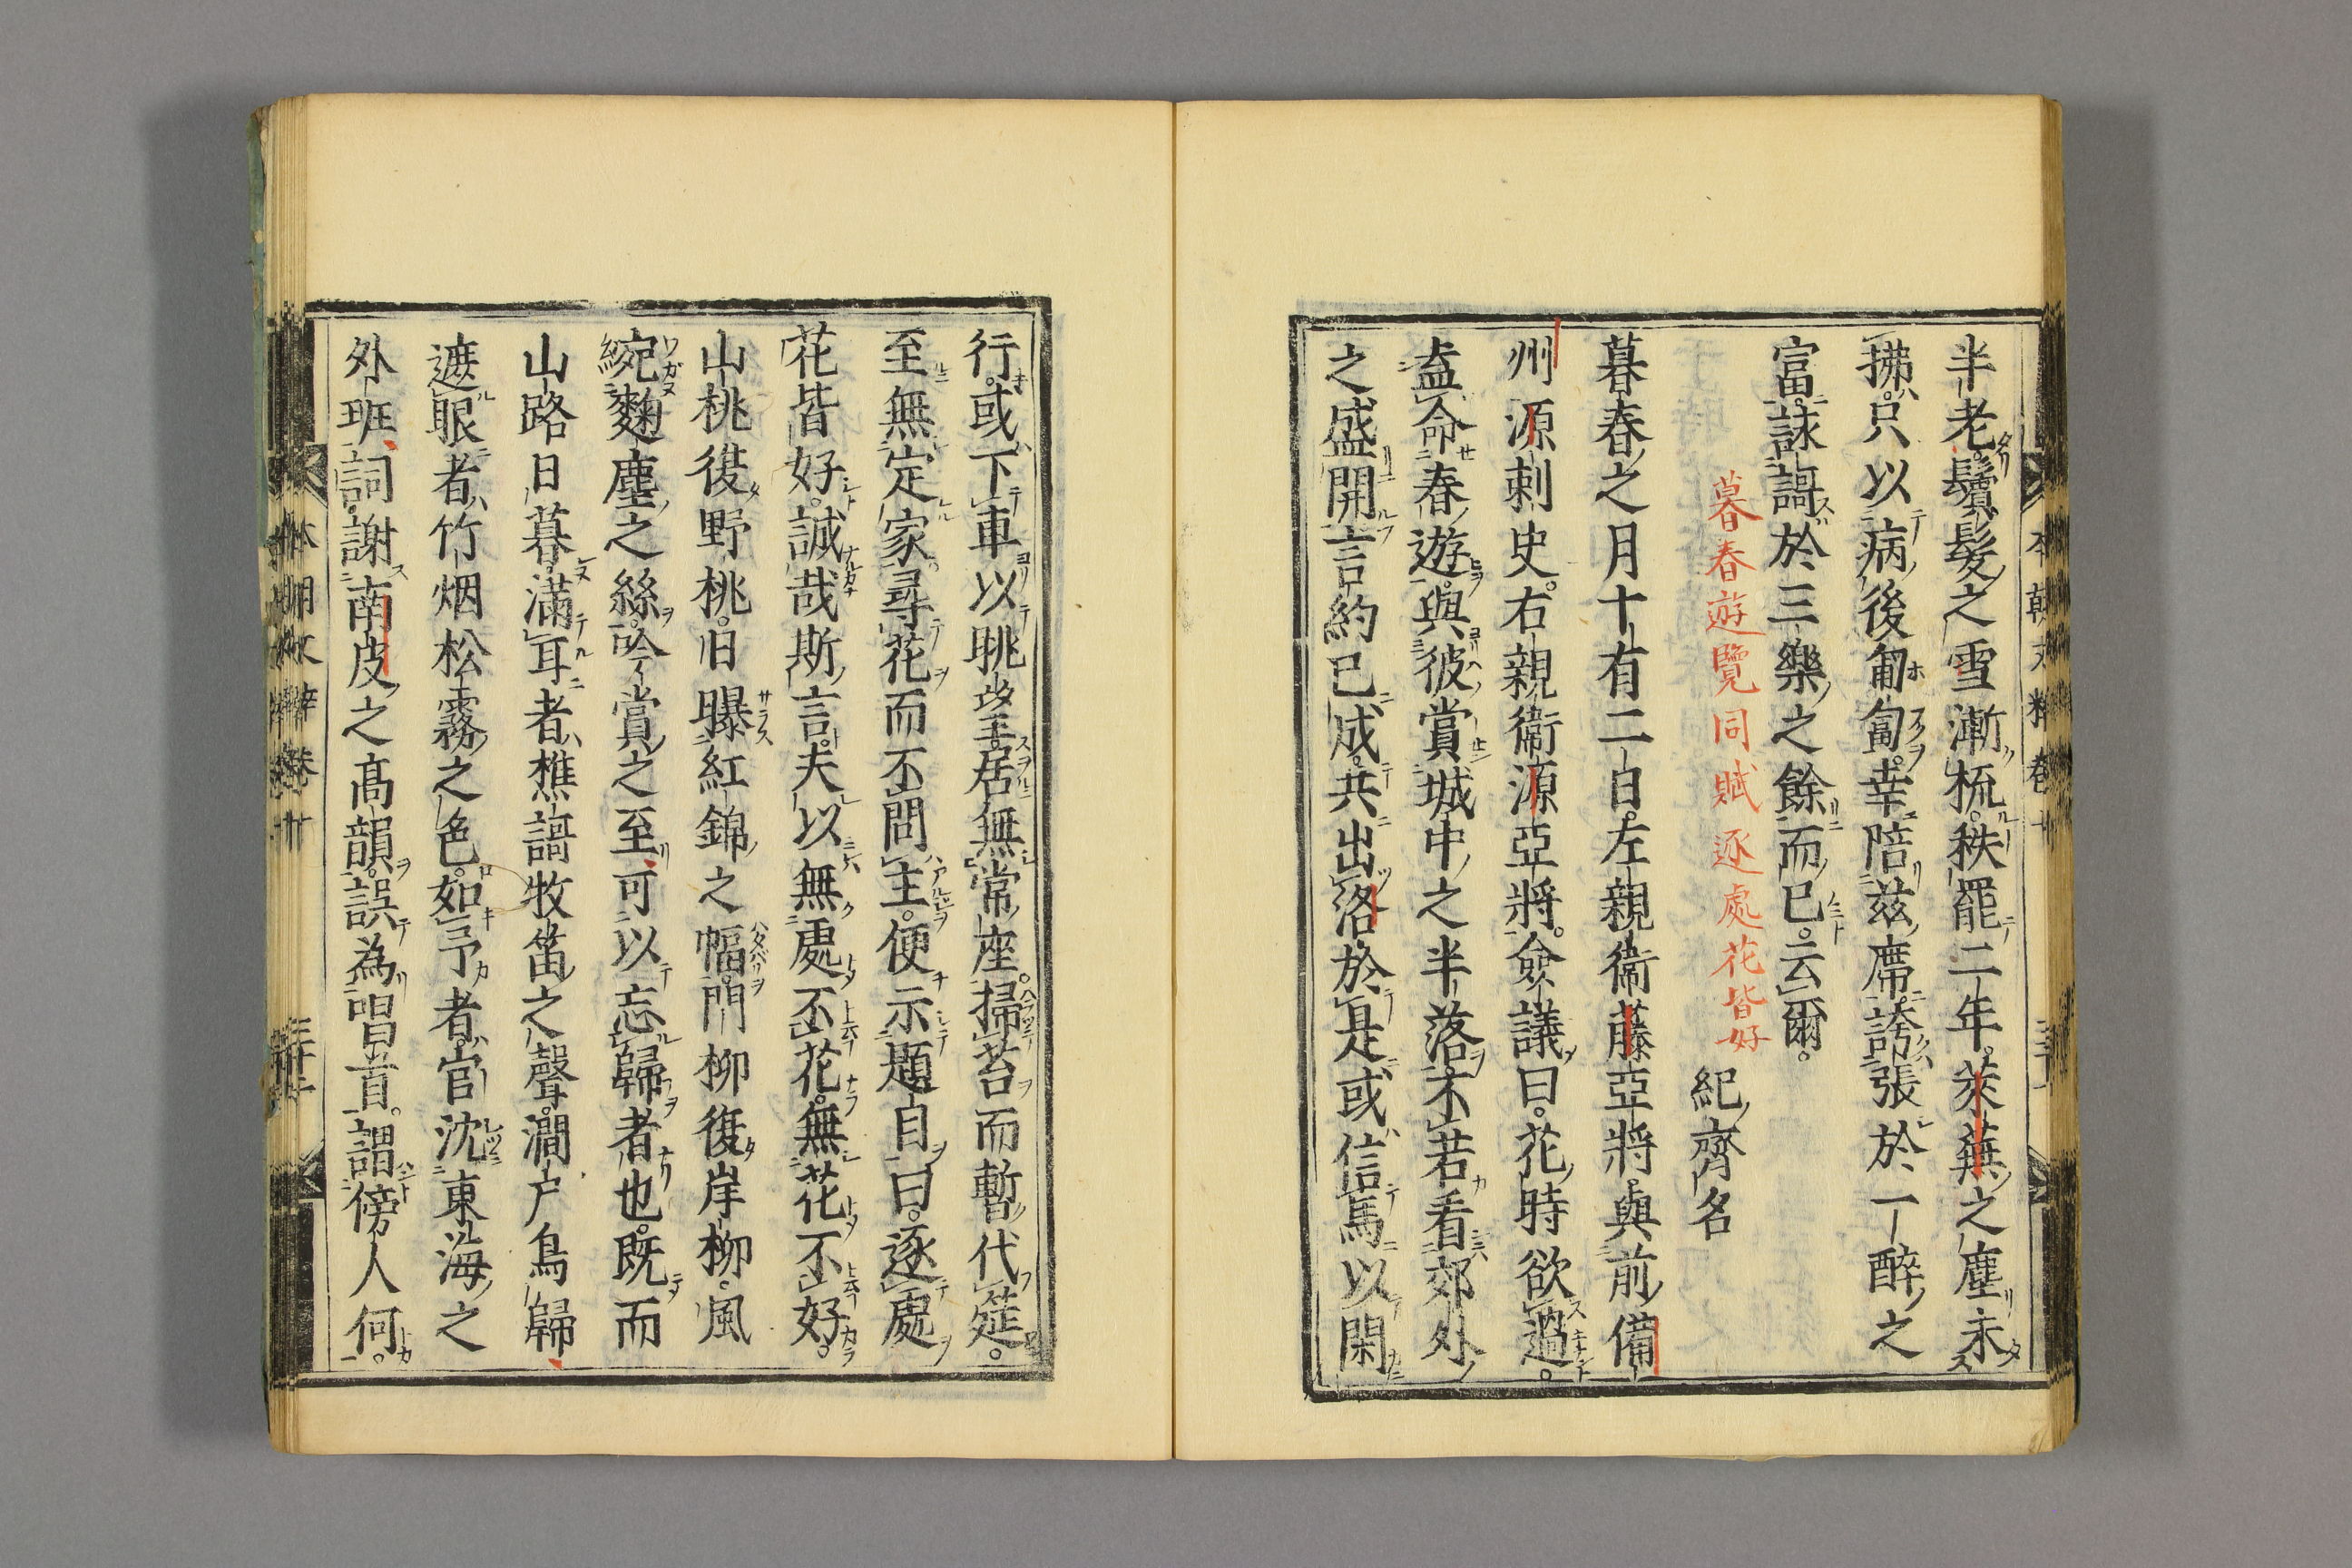 半老鬢髮之雪漸梳。秩罷二年。萊蕪之塵未
拂。只以病後匍匐。幸陪茲席。誇張於一醉之
富。詠謌於三樂之餘而已。云爾。
暮春遊覽同賦逐處花皆好
紀齊名
暮春之月十有二日。左親衞藤亞將。與前備
州源刺史。右親衞源亞將。僉議曰。花時欲過。
盍命春遊。與彼賞城中之半落。不若看郊外
之盛開。言約已成。共出洛於是或信馬以閑
行。或下車以眺望。居無常座。掃苔而暫代筵。
至無定家。尋花而不問主。便示題目曰。逐處
花皆好。誠哉斯言。夫以無處不花。無花不好。
山桃復野桃。旧曝紅錦之幅。門柳復岸柳。風
綰麴塵之絲。吟賞之至。可以忘歸者也。既而
山路日暮。滿耳者樵謌牧笛之聲。澗戶鳥歸
遮眼者竹烟松霧之色。如予者。官沈東海之
外班。詞謝南皮之高韻。誤為唱首。謂傍人何。
本朝文粹卷十
三十一
本朝文粹卷十
三十二